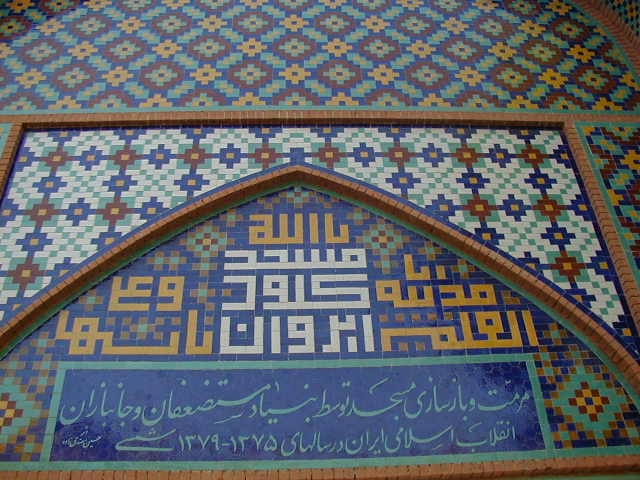 یا الله
مسجد
کبود
ایروان
انا
مدینة
العلم
وعلی
بابها
مرمت و بازسازی مسجد توسط بنیاد مستضعفان و جانبازان
انقلاب اسلامی ایران در سالهای ۱۳۷۵-۱۳۷۹ شمسی